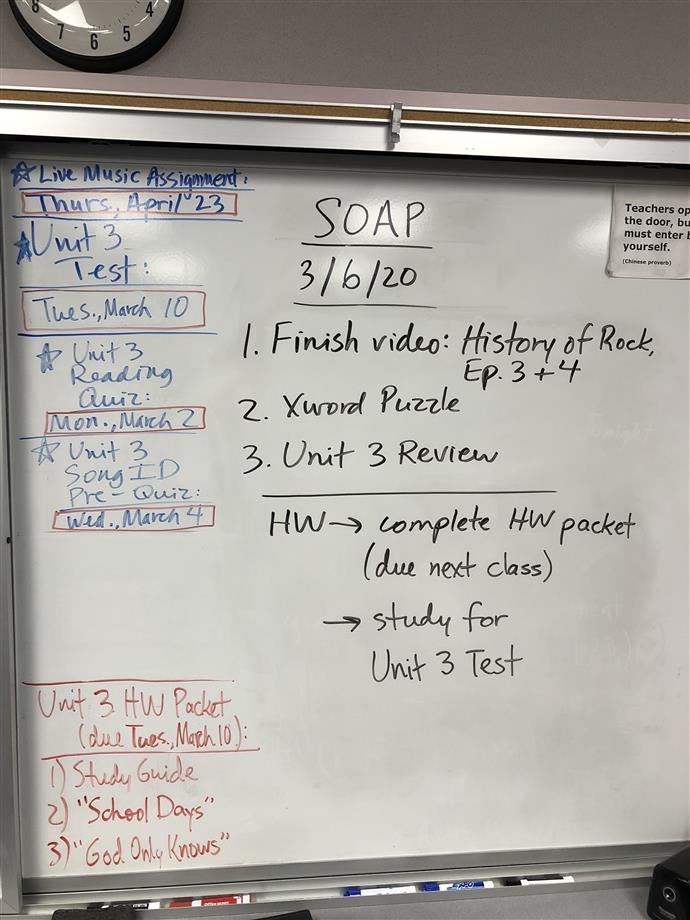 8 7 6 5 4
☆ Live Music Assignment:
Thurs., April 23
★ Unit 3
Test:
Tues., March 10
☆ Unit 3
Reading
Quiz:
Mon., March 2
☆ Unit 3
Song ID
Pre-Quiz:
Wed., March 4
Unit 3 HW Packet
(due Tues., March 10):
1) Study Guide
2) "School Days"
3) "God Only Knows"
SOAP
3/6/20
1. Finish video: History of Rock,
Ep. 3 + 4
2. Xword Puzzle
3. Unit 3 Review
HW → complete HW packet
(due next class)
→ study for
Unit 3 Test
Teachers op
the door, bu
must enter b
yourself.
(Chinese proverb)
EXPO